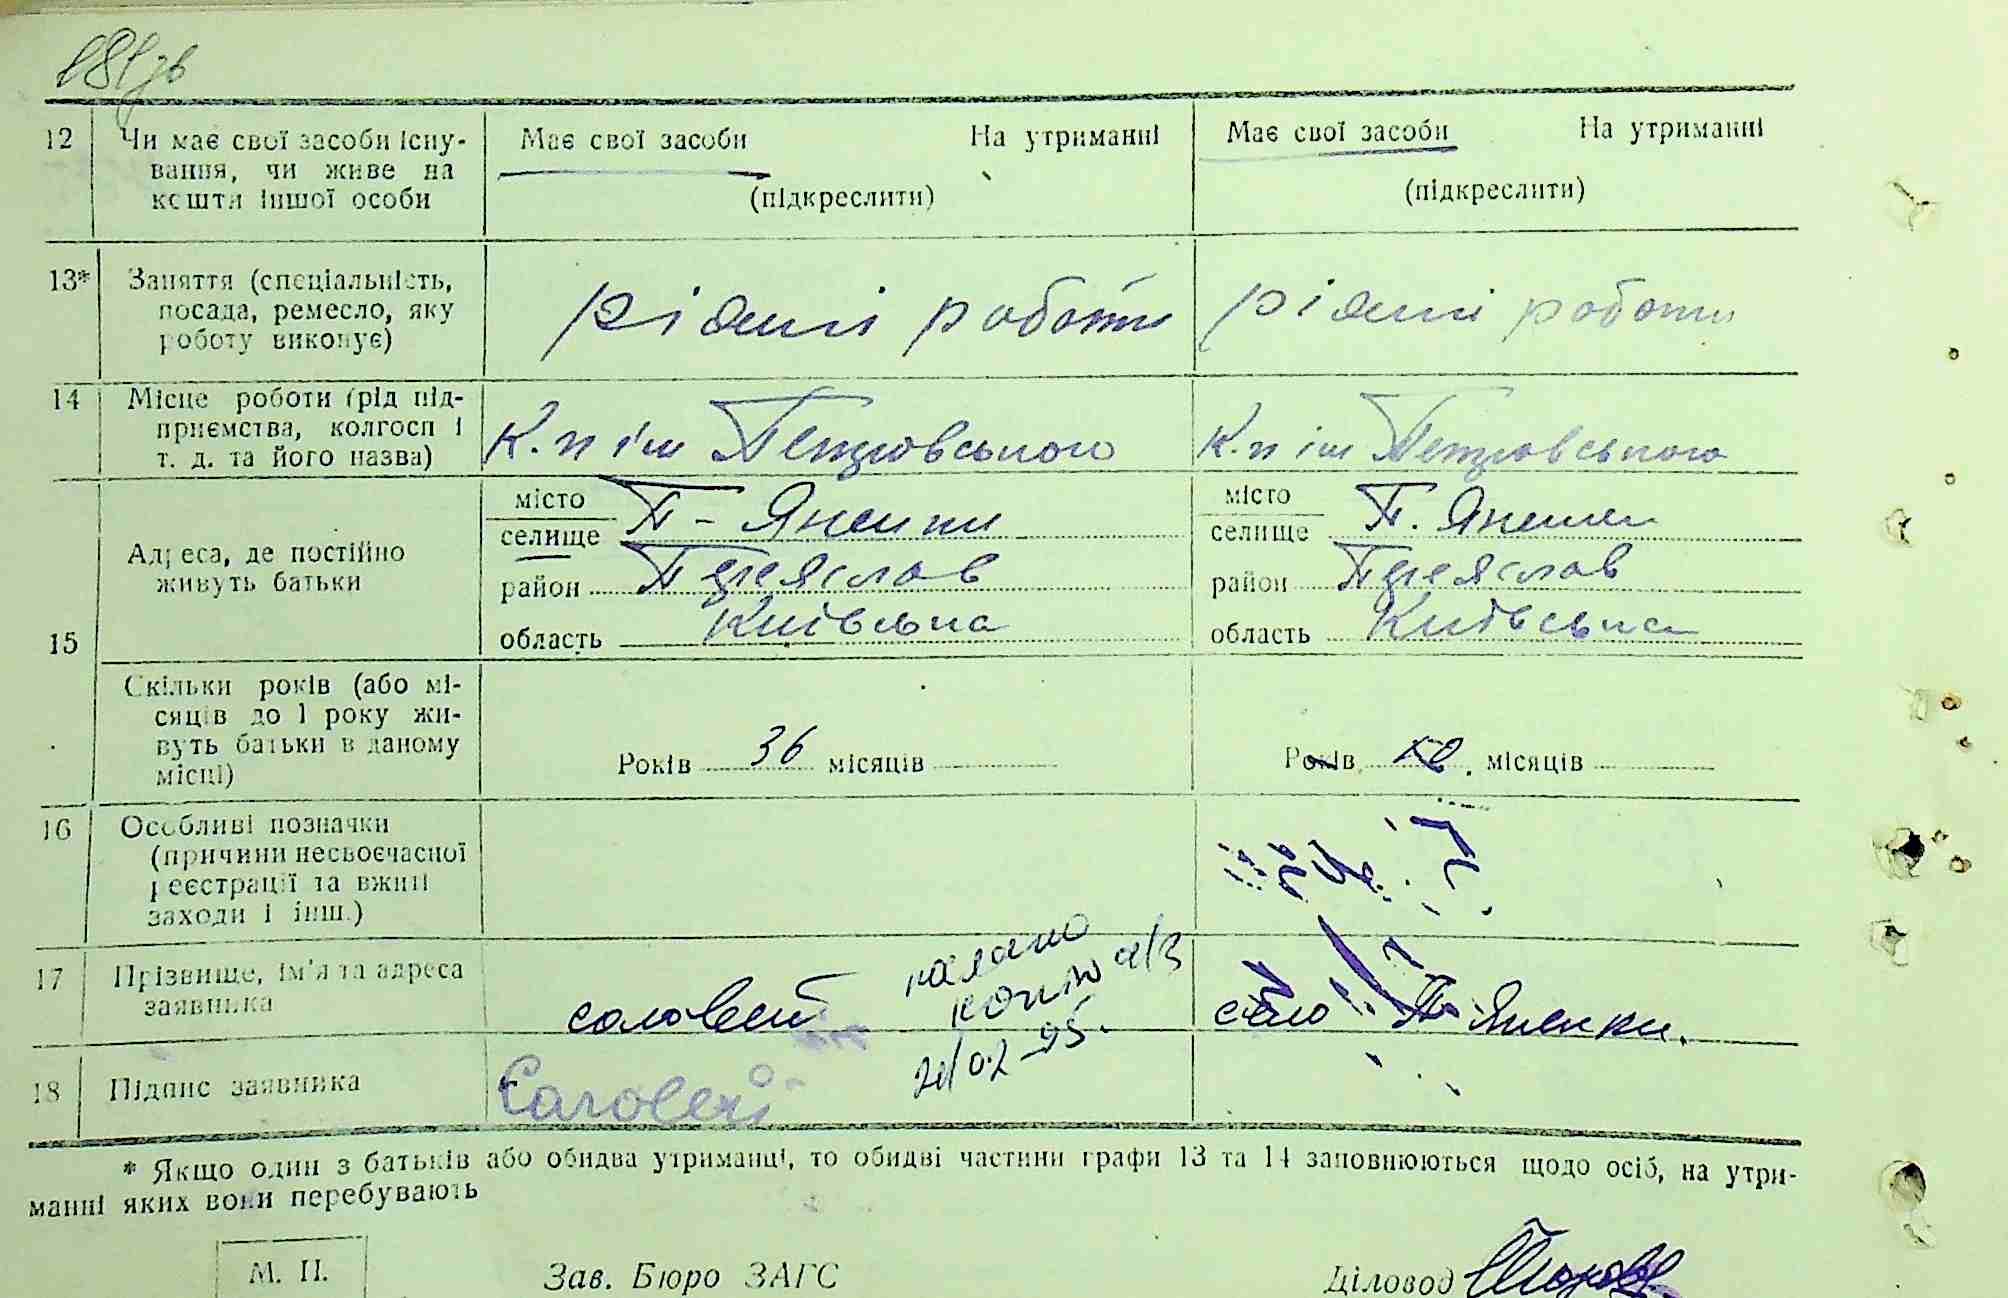 181зв
12 Чи має свої засоби існу-
вання, чи живе на
кошти іншої особи
Має свої засоби На утриманні
(підкреслити)
Має свої засоби На утриманні
(підкреслити)
13* Заняття (спеціальність,
посада, ремесло, яку
роботу виконує)
різні роботи
різні роботи
14 Місце роботи (рід під-
приємства, колгосп і
т. д. та його назва)
К.п ім Петровського
К.п ім Петровського
15
Адреса, де постійно
живуть батьки
місто
селище П-Яненки
район Переяслав
область Київська
місто
селище П. Яненки
район Переяслав
область Київська
Скільки років (або мі-
сяців до 1 року жи-
вуть батьки в даному
місці)
Років 36 місяців
Років місяців
16 Особливі позначки
(причини несвоєчасної
реєстрації та вжиті
заходи і інш.)
17 Прізвище, ім'я та адреса
заявника
соловей
село П Яненки.
18 Підпис заявника
Соловей
* Якщо один з батьків або обидва утриманці, то обидві частини графи 13 та 14 заповнюються щодо осіб, на утри-
манні яких вони перебувають
М. П.
Зав. Бюро ЗАГС
Діловод